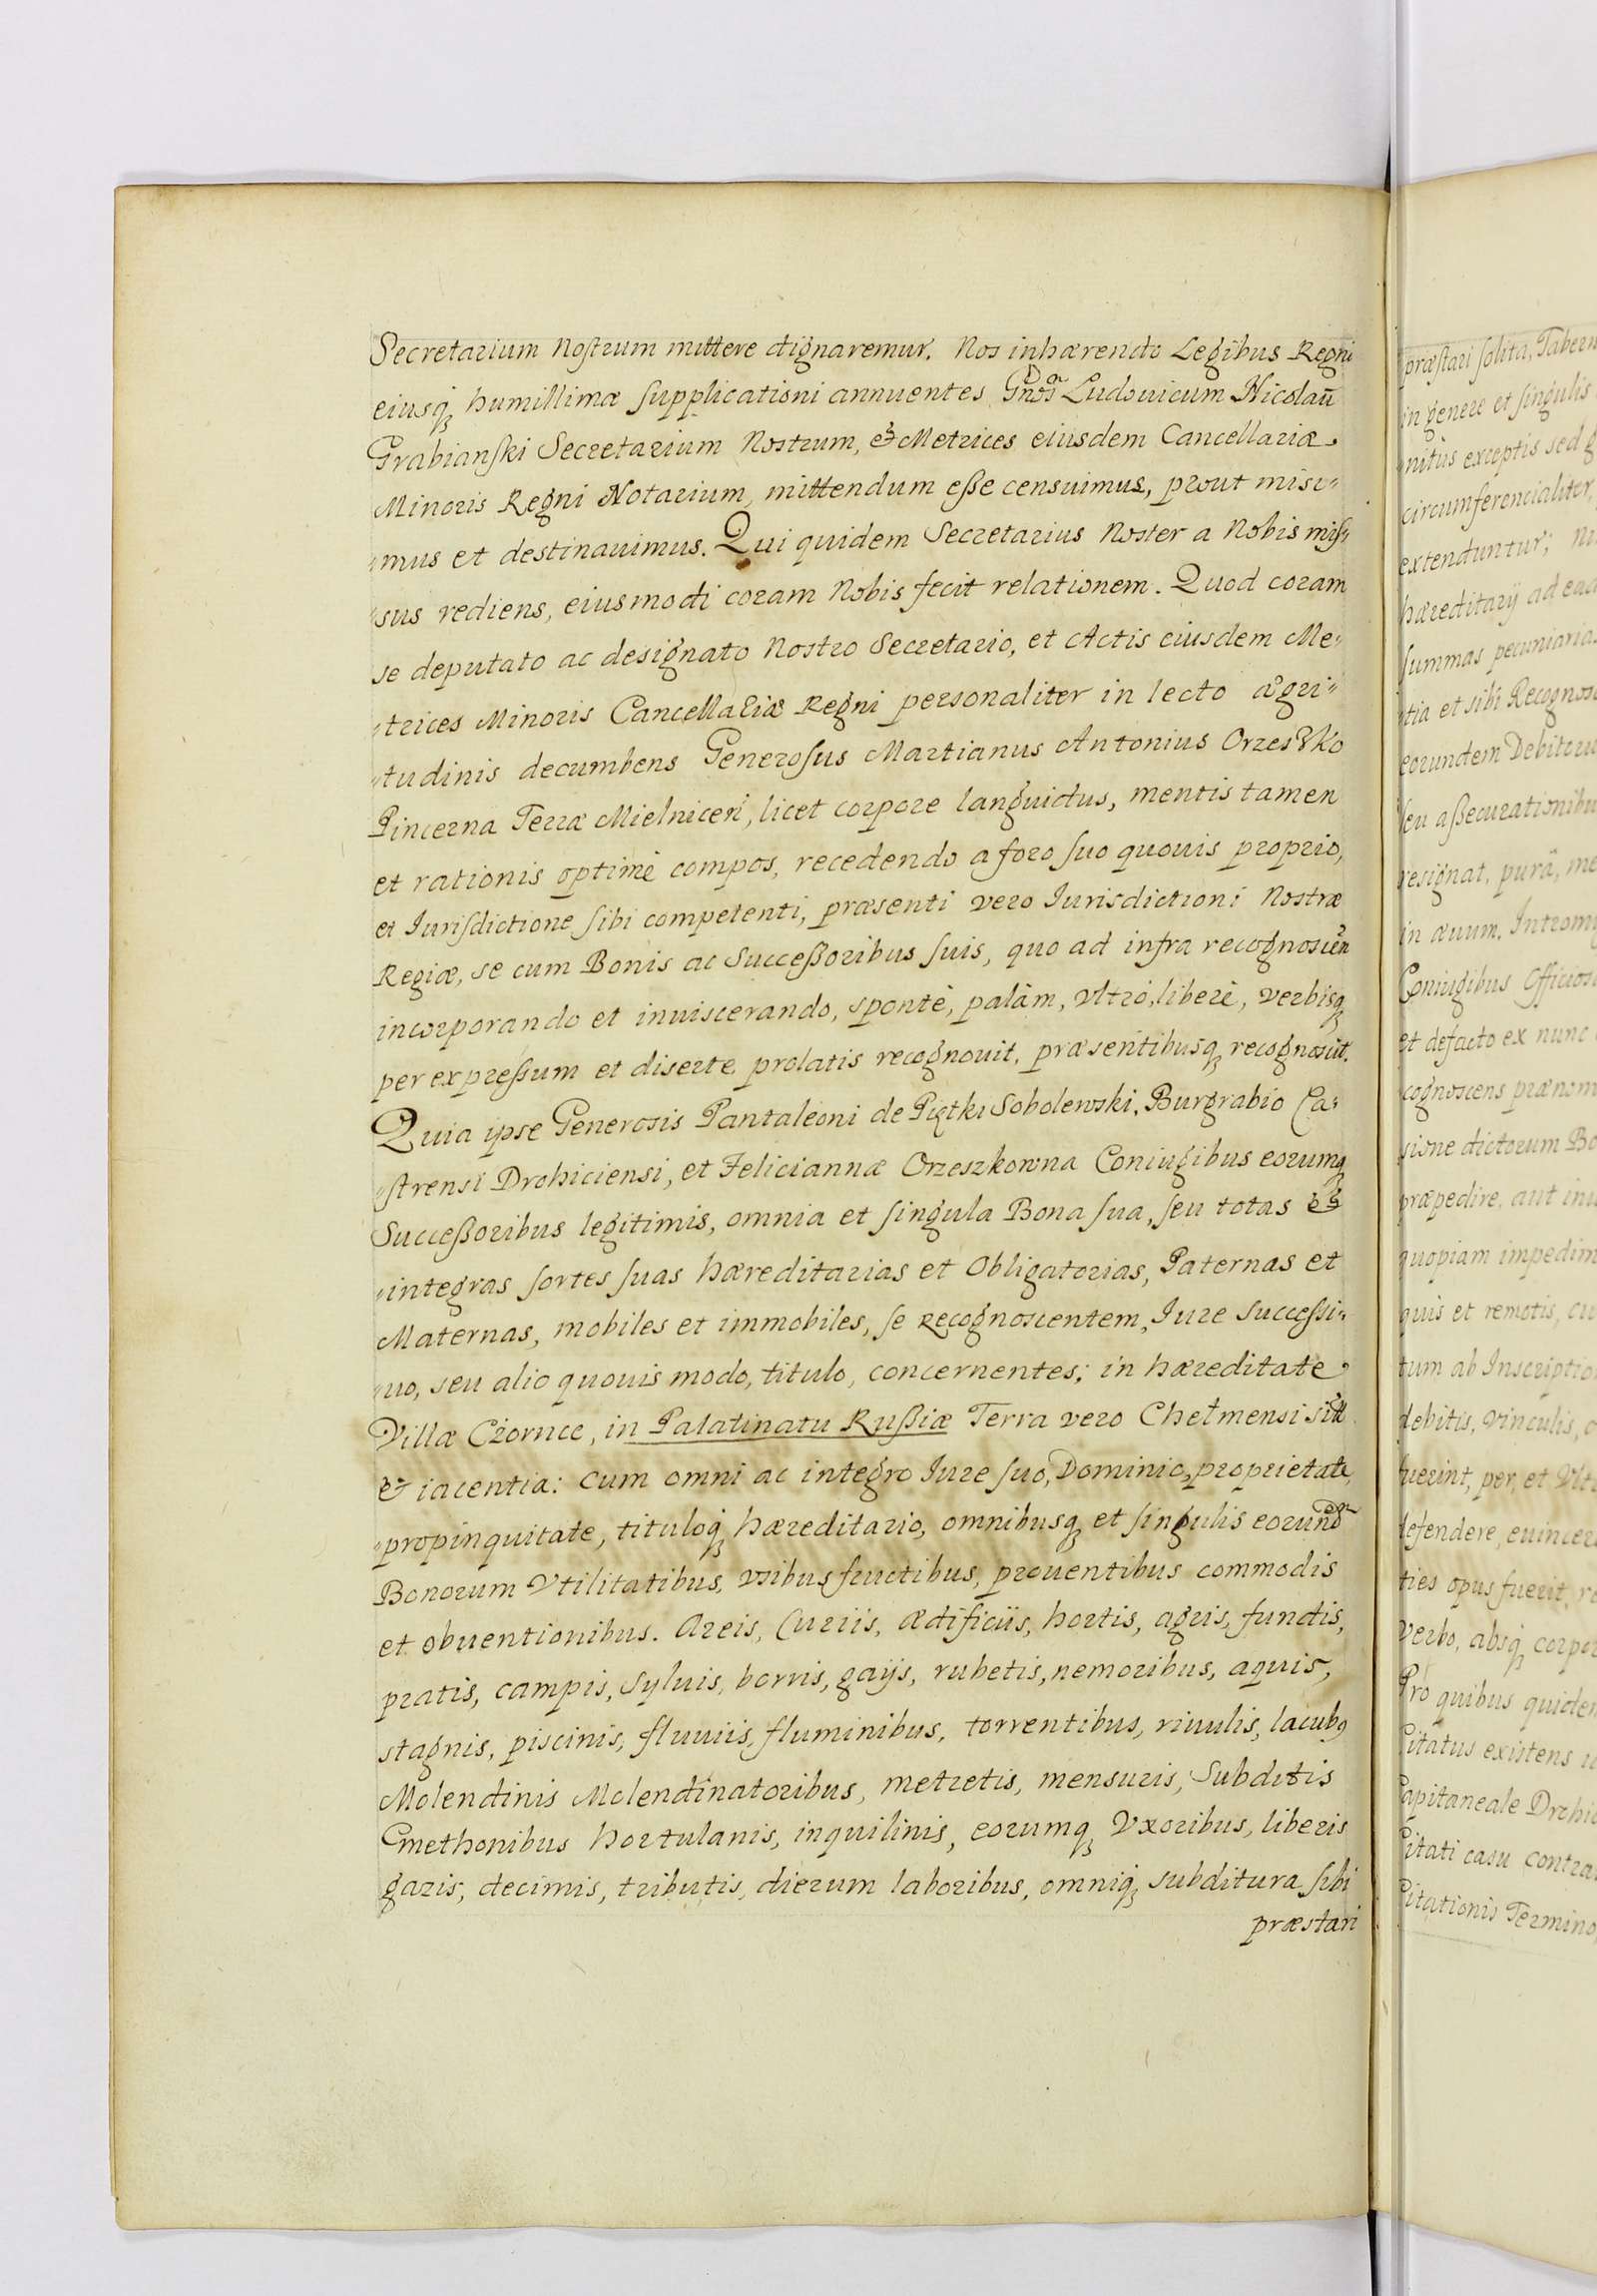 Secretarium Nostrum mittere dignaremur. Nos inhærendo Legibus Regni
eiusq humillimæ supplicationi annuentes Gnosū Ludovicum Nicolaū
Grabianski Secretarium Nostrum, et Metrices eiusdem Cancellariæ
Minoris Regni Notarium, mittendum esse censuimus, prout misi„
„mus et destinauimus. Qui quidem Secretarius Noster a Nobis miss„
„sus rediens, eiusmodi coram Nobis fecit relationem. Quod coram
se deputato ac designato Nostro Secretario, et Actis eiusdem Me„
„trices Minoris Cancellariæ Regni personaliter in lecto ægri„
„tudinis decumbens Generosus Martianus Antonius Orzeszko
Pincerna Terræ Mielnicen, licet corpore languidus, mentis tamen
et rationis optimè compos, recedendo a foro suo quouis proprio,
et Jurisdictione sibi competenti, præsenti vero Jurisdictioni Nostræ
Regiæ, se cum Bonis ac Successoribus suis, quo ad infra recognoscēn
incorporando et inuiscerando, spontè, palàm, vltrò, liberè, verbisq
per expressum et diserte prolatis recognouit, præsentibusq recognoscit.
Quia ipse Generosis Pantaleoni de Piętki Sobolewski, Burgrabio Ca„
„strensi Drohiciensi, et Feliciannæ Orzeszkowna Coniugibus eorumq
Successoribus legitimis, omnia et singula Bona sua, seu totas et
„integras sortes suas hæreditarias et Obligatorias, Paternas et
Maternas, mobiles et immobiles, se recognoscentem, Jure Successi„
„uo, seu alio quouis modo, titulo, concernentes; in hæreditate
Villæ Czornce, in Palatinatu Russiæ Terra vero Chełmensi sitt
et iacentia: cum omni ac integro Jure suo, Dominio, proprietate,
„propinquitate, tituloq hæreditario, omnibusq et singulis eorund
Bonorum Vtilitatibus, vsibus fructibus, prouentibus commodis
et obuentionibus. Areis, Curiis, ædificiis, hortis, agris, fundis,
pratis, campis, syluis, borris, gaijs, rubetis, nemoribus, aquis,
stagnis, piscinis, fluuiis, fluminibus, torrentibus, riuulis, lacub9
Molendinis Molendinatoribus, metretis, mensuris, Subditis
Cmethonibus hortulanis, inquilinis, eorumq Vxoribus, liberis
gazis, decimis, tributis, dierum laboribus, omniq subditura sibi
præstari
præstari solita, Tabern
in genere et singulis
„nitus exceptis sed g
circumferencialiter,
extenduntur;
hæreditarij ad ead
summas pecuniarias
„tia et sibi Recognos
eorundem Debitru
seu assecurationibu
resignat, purâ, me
in æuum. Intromi
Coniugibus Officios
et defacto ex nunc
cognoscens prænom
sione dictorum Bo
præpedire, aut inu
quopiam impedim
quis et remotis, cu
tum ab Inscriptio
debitis, vinculis,
fuerint, per, et Vlt
defendere, euincer
ties opus fuerit, r
verbo, absq corpor
Pro quibus quidem
Citatus existens
Capitaneale Drohic
Citati casu contra
Citationis Termino